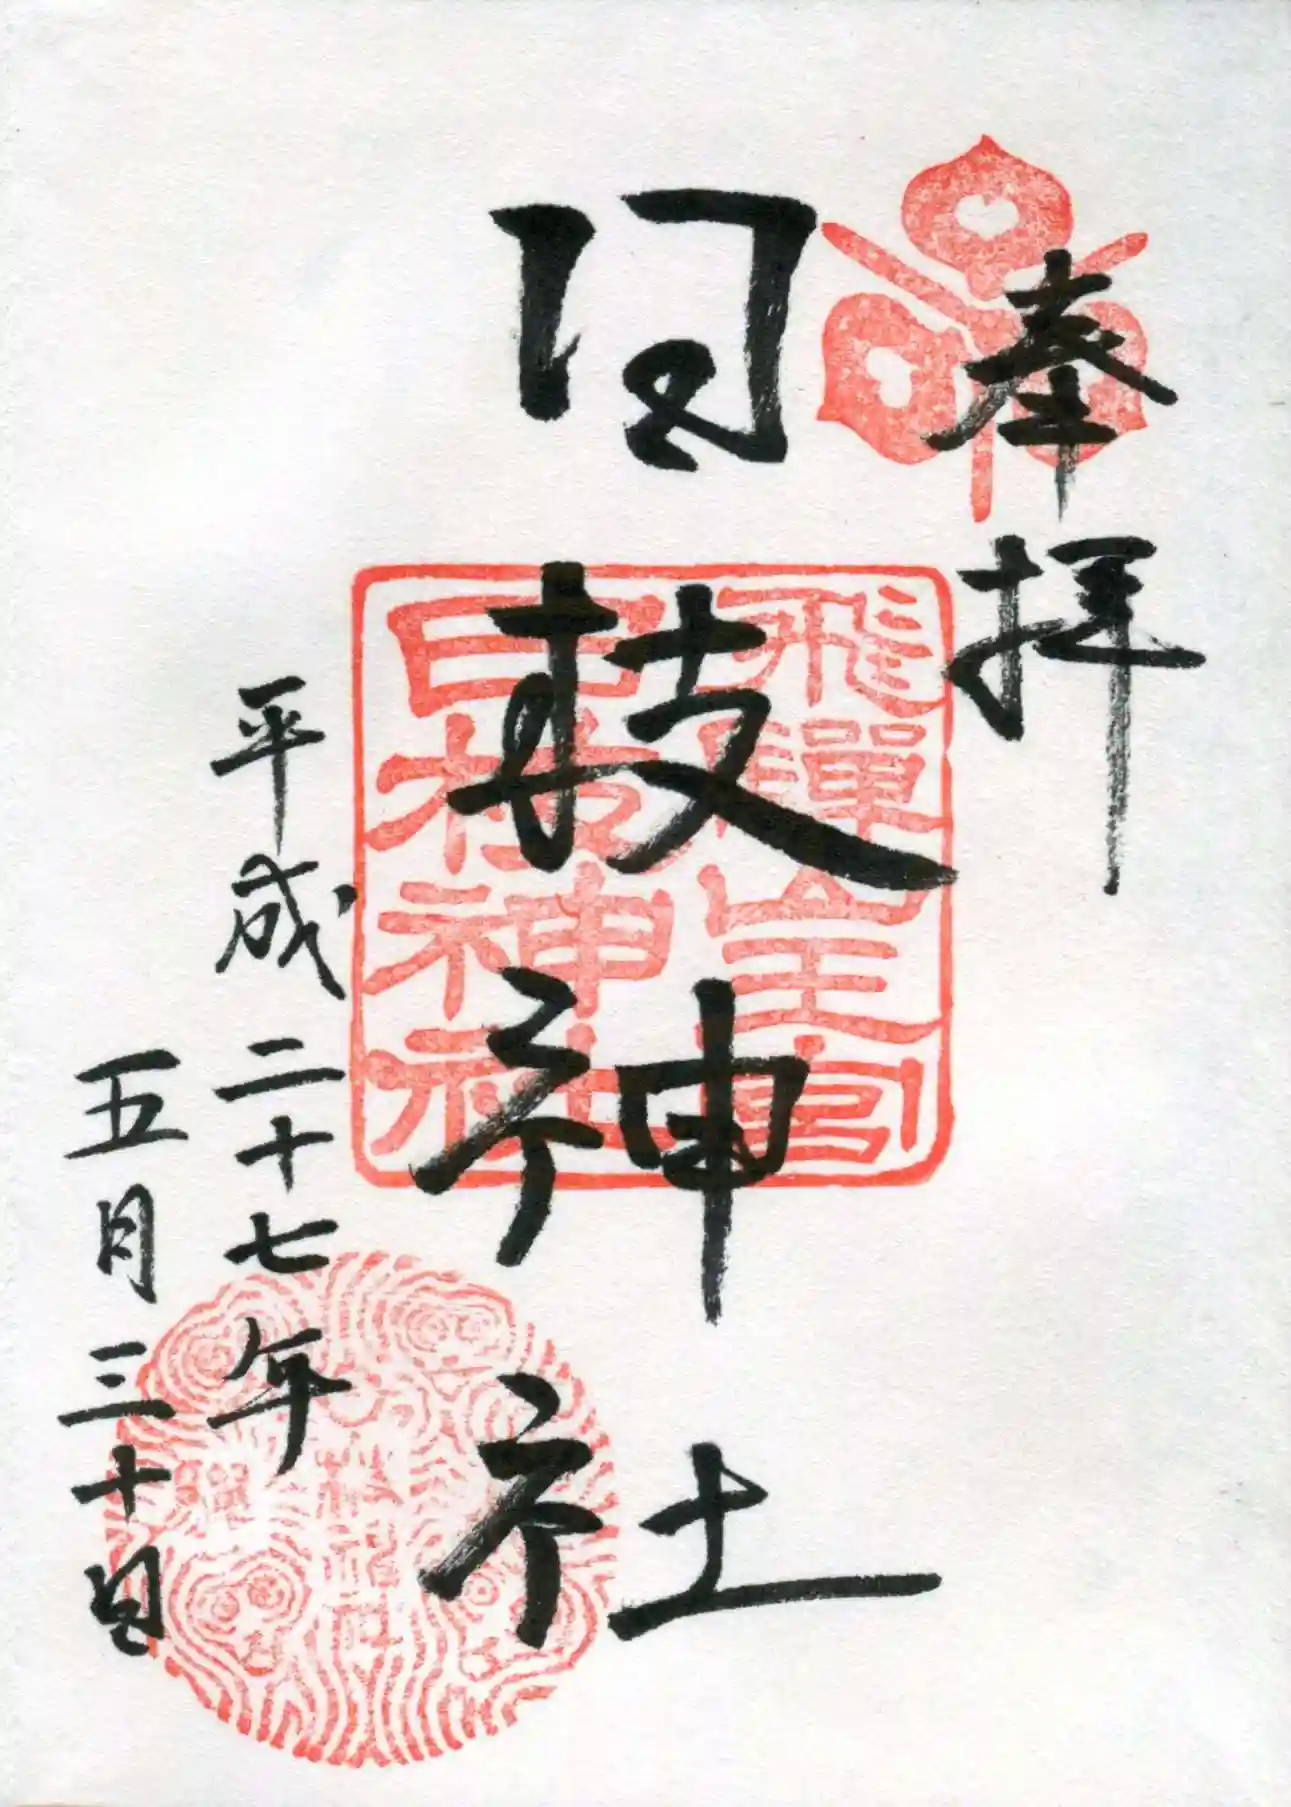 奉拝
日枝神社
飛騨山王宮
日枝神社
平成二十七年
五月三十日